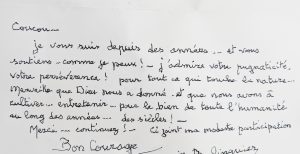 Coucou —
je vous suis depuis des années ... et vous
soutiens - comme je peux ! - j'admire votre pugnacité,
votre persévérance ! pour tout ce qui touche la nature ...
Merveille que Dieu nous a donné . et que nous avons à
cultiver ... entretenir ... pour le bien de toute l'humanité
au long des années ... des siècles ! —
Merci ... continuez ! — Ci joint ma modeste participation
Bon Courage